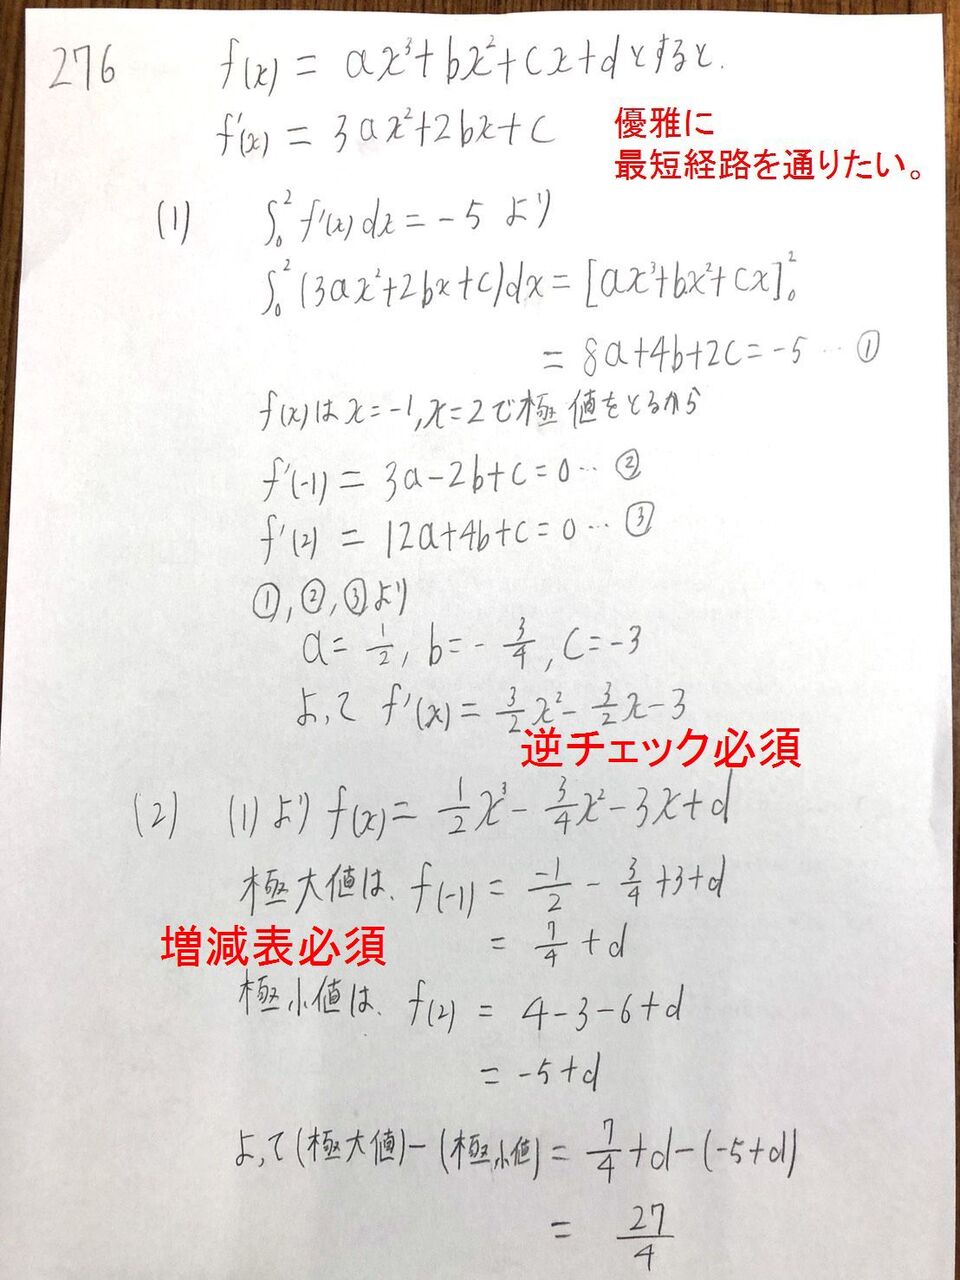 276 f(x) = ax³+bx²+cx+dとすると.
f'(x) = 3ax²+2bx+c
優雅に
最短経路を通りたい。
(1) ∫₀² f'(x)dx = -5 より
∫₀² (3ax²+2bx+c)dx = [ax³+bx²+cx]₀²
= 8a+4b+2c = -5 … ①
f(x)はx=-1, x=2で極値をとるから
f'(-1) = 3a-2b+c=0 … ②
f'(2) = 12a+4b+c=0 … ③
①, ②, ③より
a= 1/2, b= - 3/4, c= -3
よって f'(x) = 3/2 x² - 3/2 x - 3
逆チェック必須
(2) (1)より f(x) = 1/2 x³ - 3/4 x² - 3x+d
極大値は. f(-1) = -1/2 - 3/4 +3+d
= 7/4 + d
増減表必須
極小値は. f(2) = 4-3-6+d
= -5+d
よって(極大値)-(極小値) = 7/4 +d-(-5+d)
= 27/4